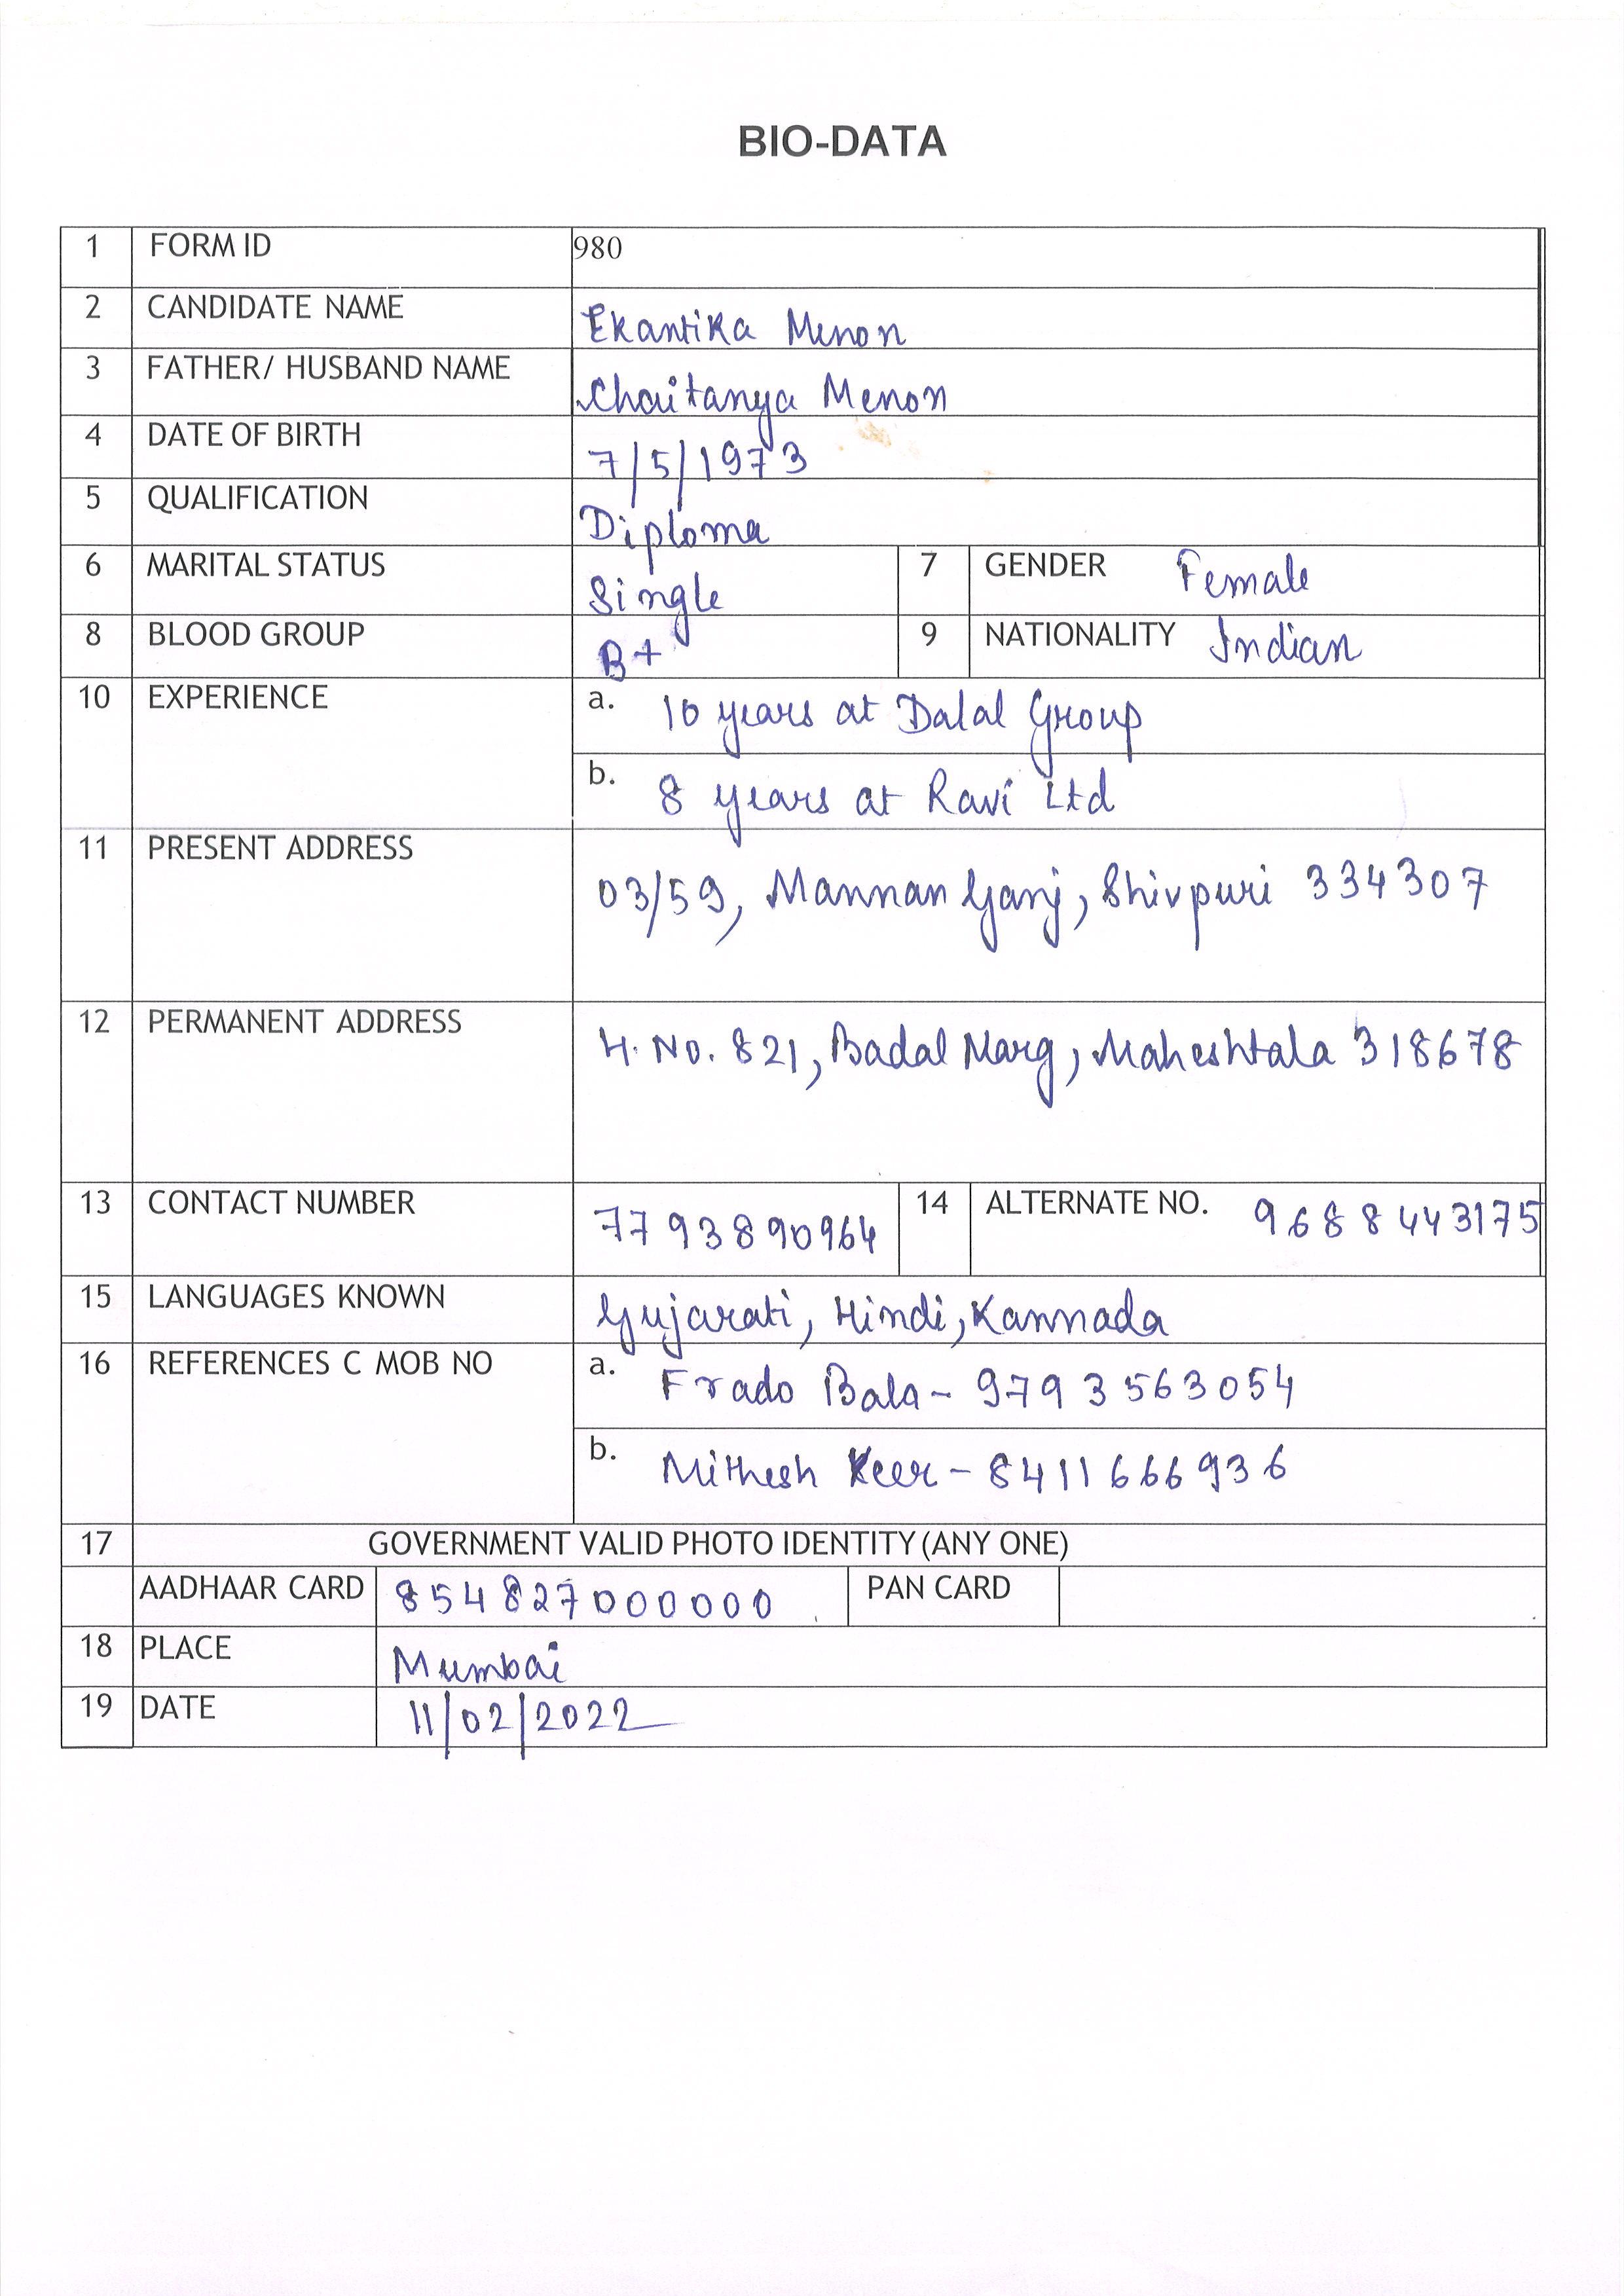 BIO-DATA
1 FORM ID 980
2 CANDIDATE NAME Ekantika Menon
3 FATHER/ HUSBAND NAME Chaitanya Menon
4 DATE OF BIRTH 7/5/1973
5 QUALIFICATION Diploma
6 MARITAL STATUS Single 7 GENDER Female
8 BLOOD GROUP B+ 9 NATIONALITY Indian
10 EXPERIENCE a. 10 years at Dalal Group
b. 8 years at Ravi Ltd
11 PRESENT ADDRESS 03/59, Mannan Ganj, Shivpuri 334307
12 PERMANENT ADDRESS H. No. 821, Badal Marg, Maheshtala 318678
13 CONTACT NUMBER 7793890964 14 ALTERNATE NO. 9688443175
15 LANGUAGES KNOWN Gujarati, Hindi, Kannada
16 REFERENCES C MOB NO a. Frado Bala - 9793563054
b. Mithesh Keer - 8411666936
17 GOVERNMENT VALID PHOTO IDENTITY (ANY ONE)
AADHAAR CARD 854827000000 PAN CARD
18 PLACE Mumbai
19 DATE 11/02/2022